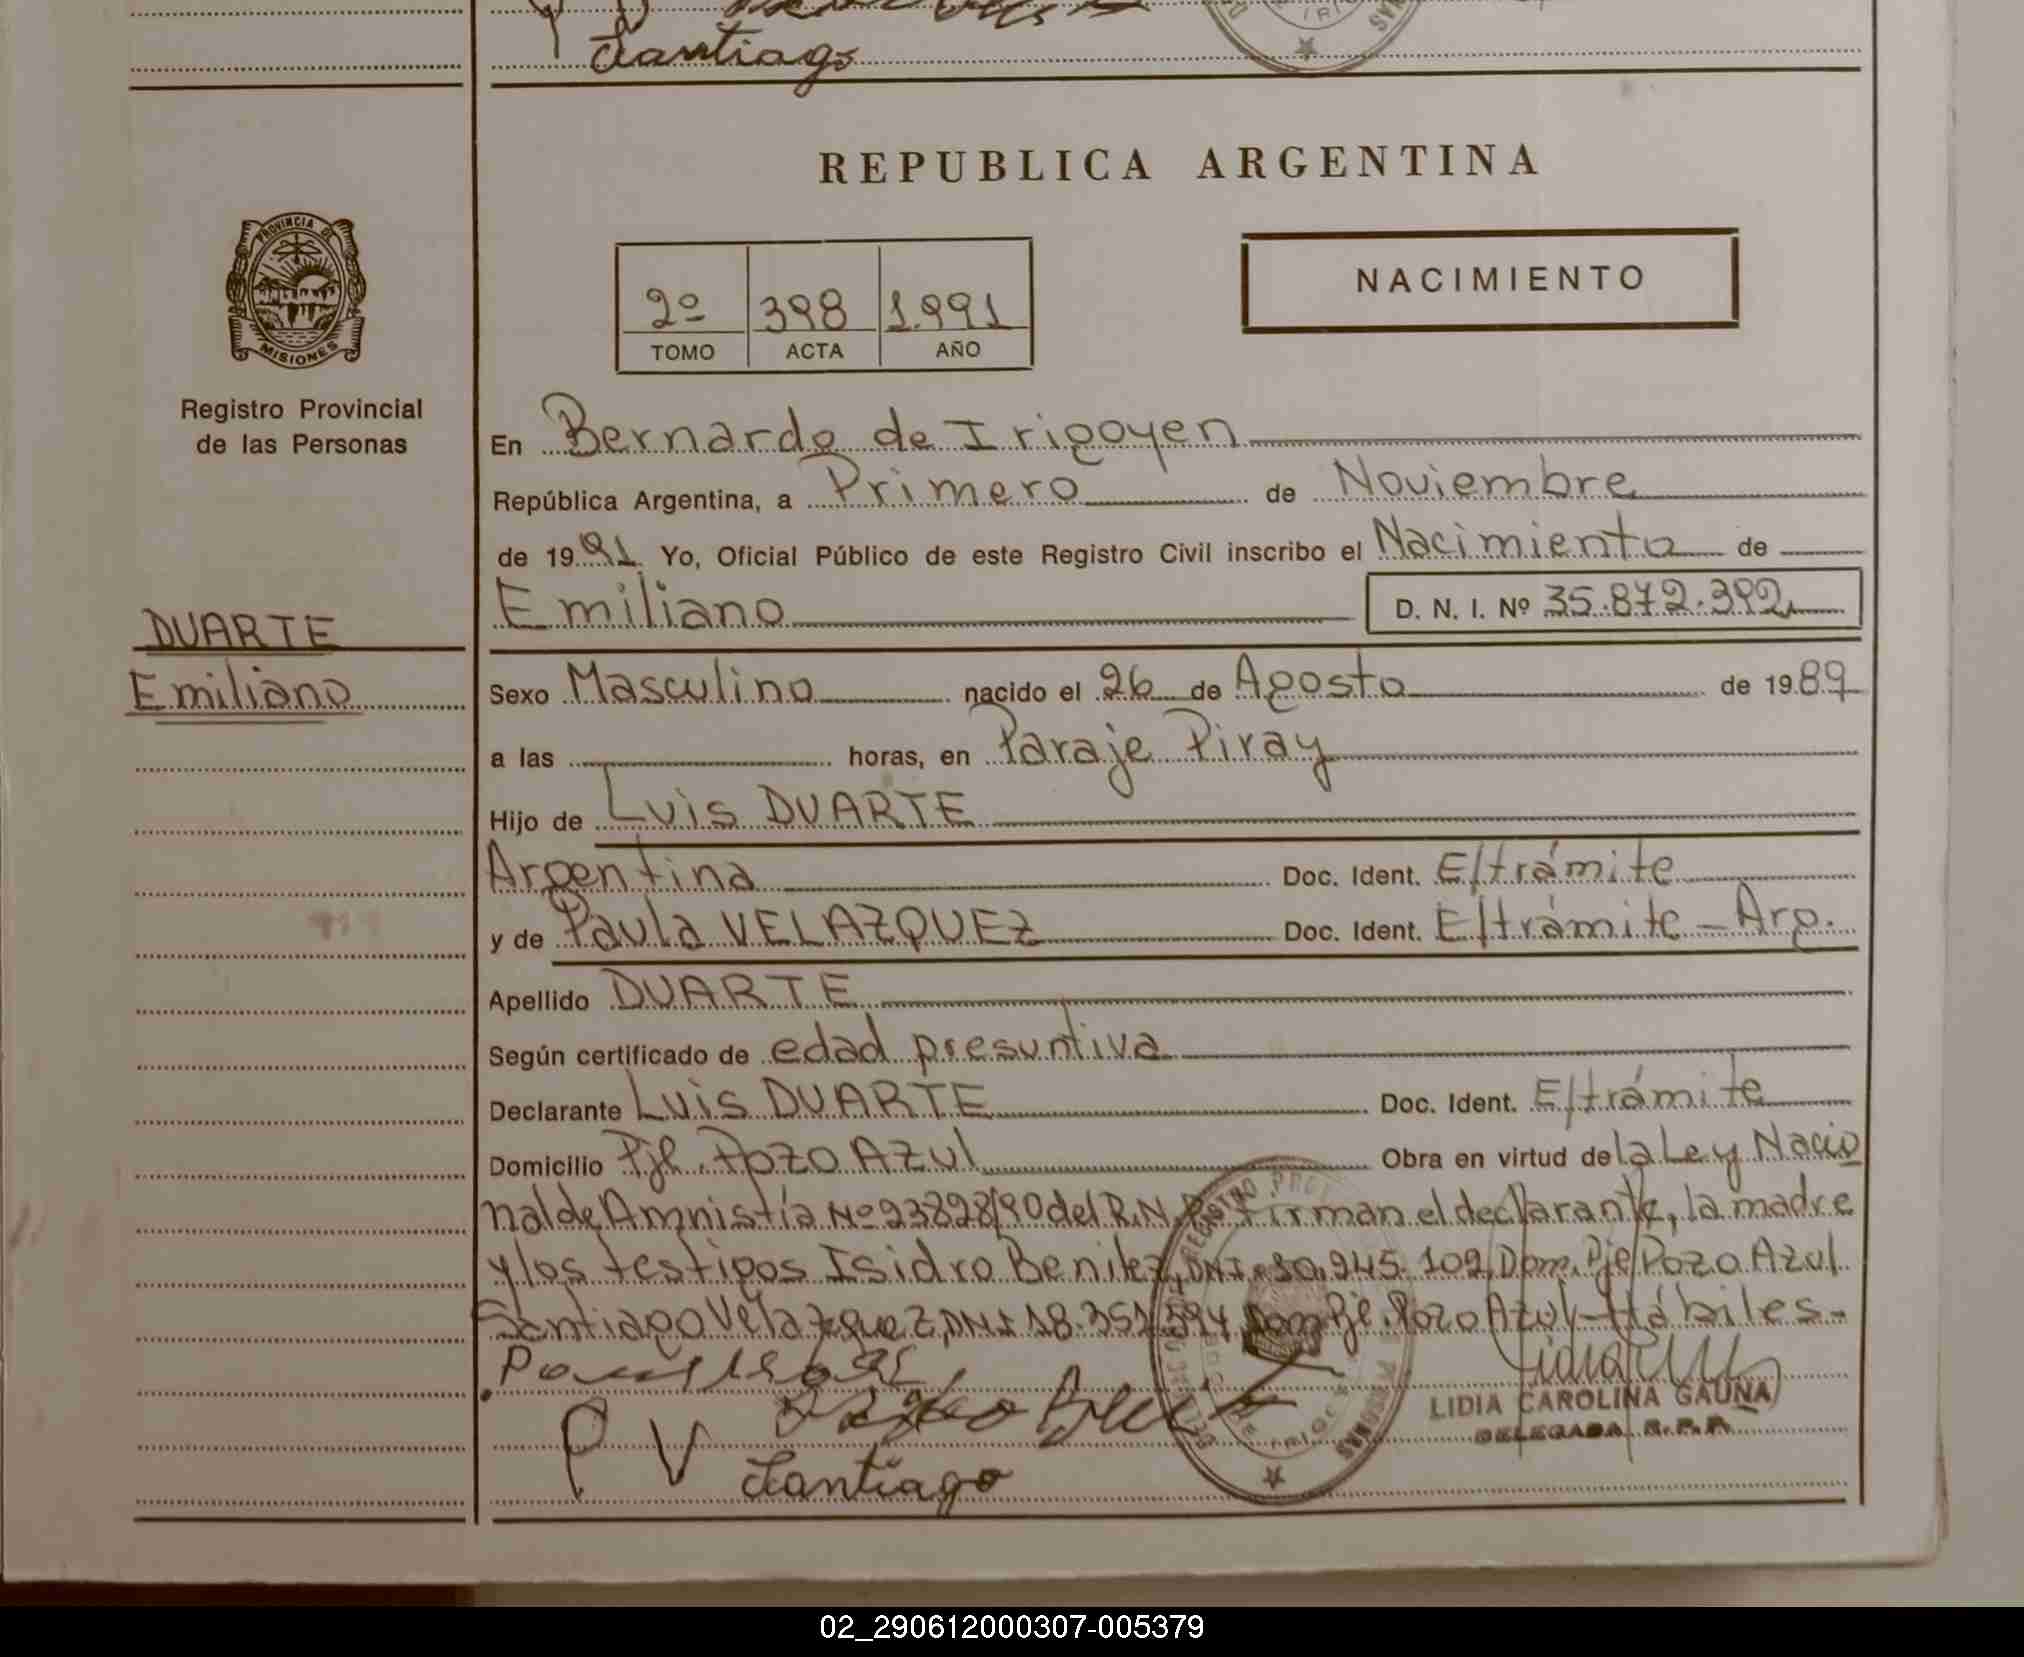 Santiago
REPUBLICA ARGENTINA
PROVINCIA DE
MISIONES
Registro Provincial
de las Personas
2º 398 1.991
TOMO ACTA AÑO
NACIMIENTO
En Bernardo de Irigoyen
República Argentina, a Primero de Noviembre
de 1991 Yo, Oficial Público de este Registro Civil inscribo el Nacimiento de
Emiliano D. N. I. Nº 35.872.392
DUARTE
Emiliano
Sexo Masculino nacido el 26 de Agosto de 1989
a las horas, en Paraje Piray
Hijo de Luis DUARTE
Argentina Doc. Ident. E/trámite
y de Paula VELAZQUEZ Doc. Ident. E/trámite - Arg.
Apellido DUARTE
Según certificado de edad presuntiva
Declarante Luis DUARTE Doc. Ident. E/trámite
Domicilio Pje. Pozo Azul Obra en virtud de la Ley Nacio
nal de Amnistía Nº 23828/90 del R.N. Firman el declarante, la madre
y los testigos Isidro Benitez, DNI 945.102, Dom. Pje Pozo Azul
Santiago Velazquez, DNI 18.351.594 Dom Pje. Pozo Azul - Hábiles.-
P V
Santiago
LIDIA CAROLINA GAUNA
DELEGADA R.P.P.
02_290612000307-005379